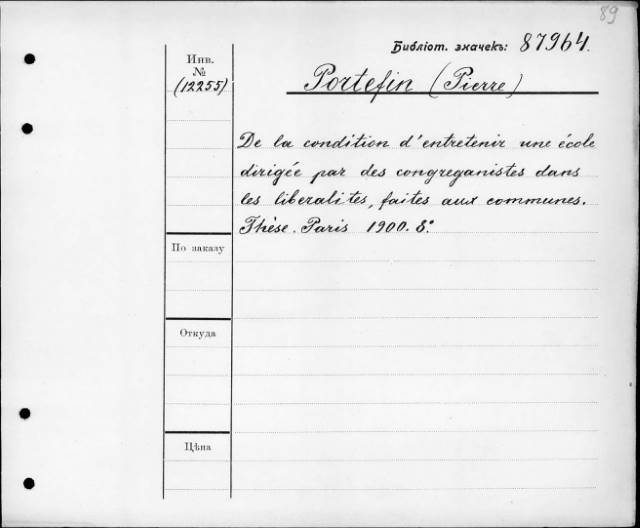 89
Библіот. значекъ: 87964.
Инв.
№
(12255)
Portefin (Pierre)
De la condition d'entretenir une école
dirigée par des congreganistes dans
les liberalites, faites aux communes.
Thèse. Paris 1900. 8º.
По заказу
Откуда
Цѣна